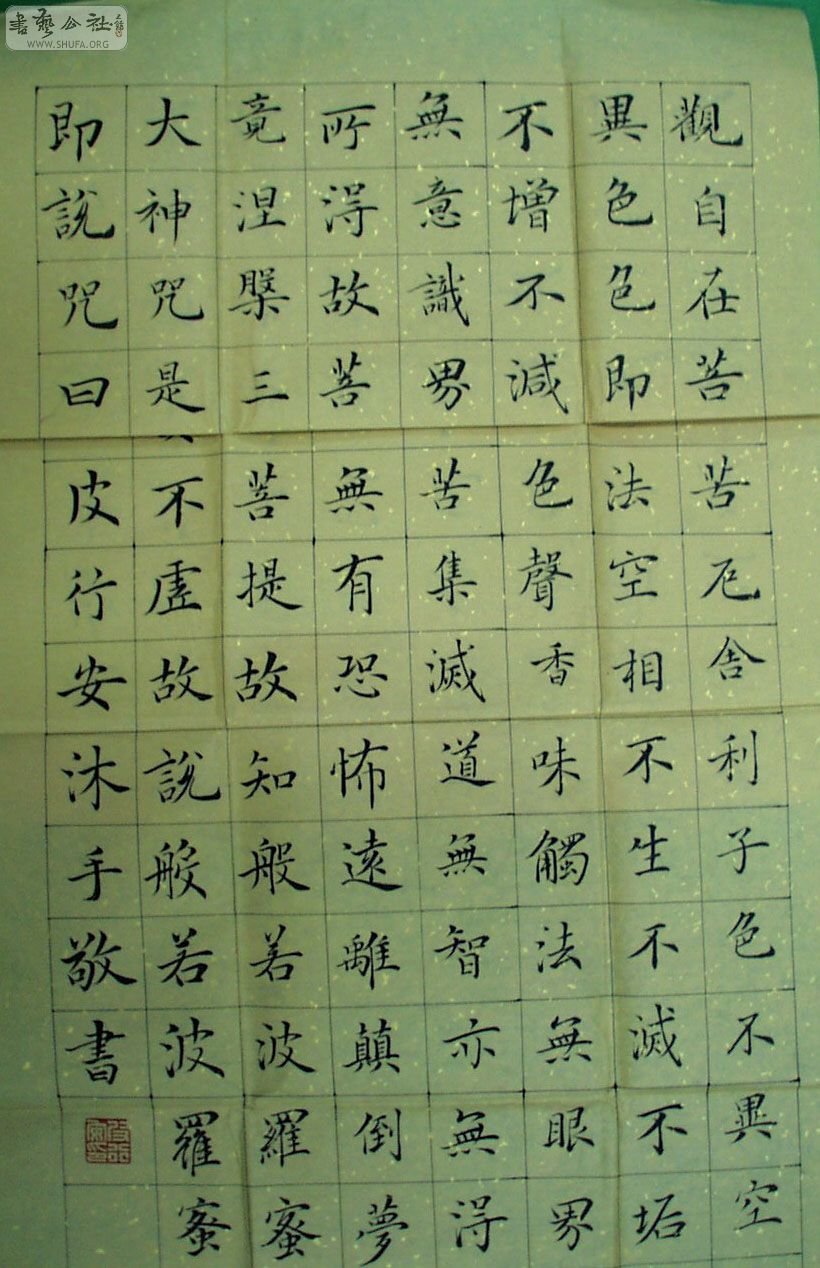 書藝公社
WWW.SHUFA.ORG
觀自在菩苦厄舍利子色不異空
異色色即法空相不生不滅不垢
不增不減色聲香味觸法無眼界
無意識界苦集滅道無智亦無得
所得故菩無有恐怖遠離顛倒夢
竟涅槃三菩提故知般若波羅蜜
大神咒是不虛故說般若波羅蜜
即說咒曰皮行安沐手敬書